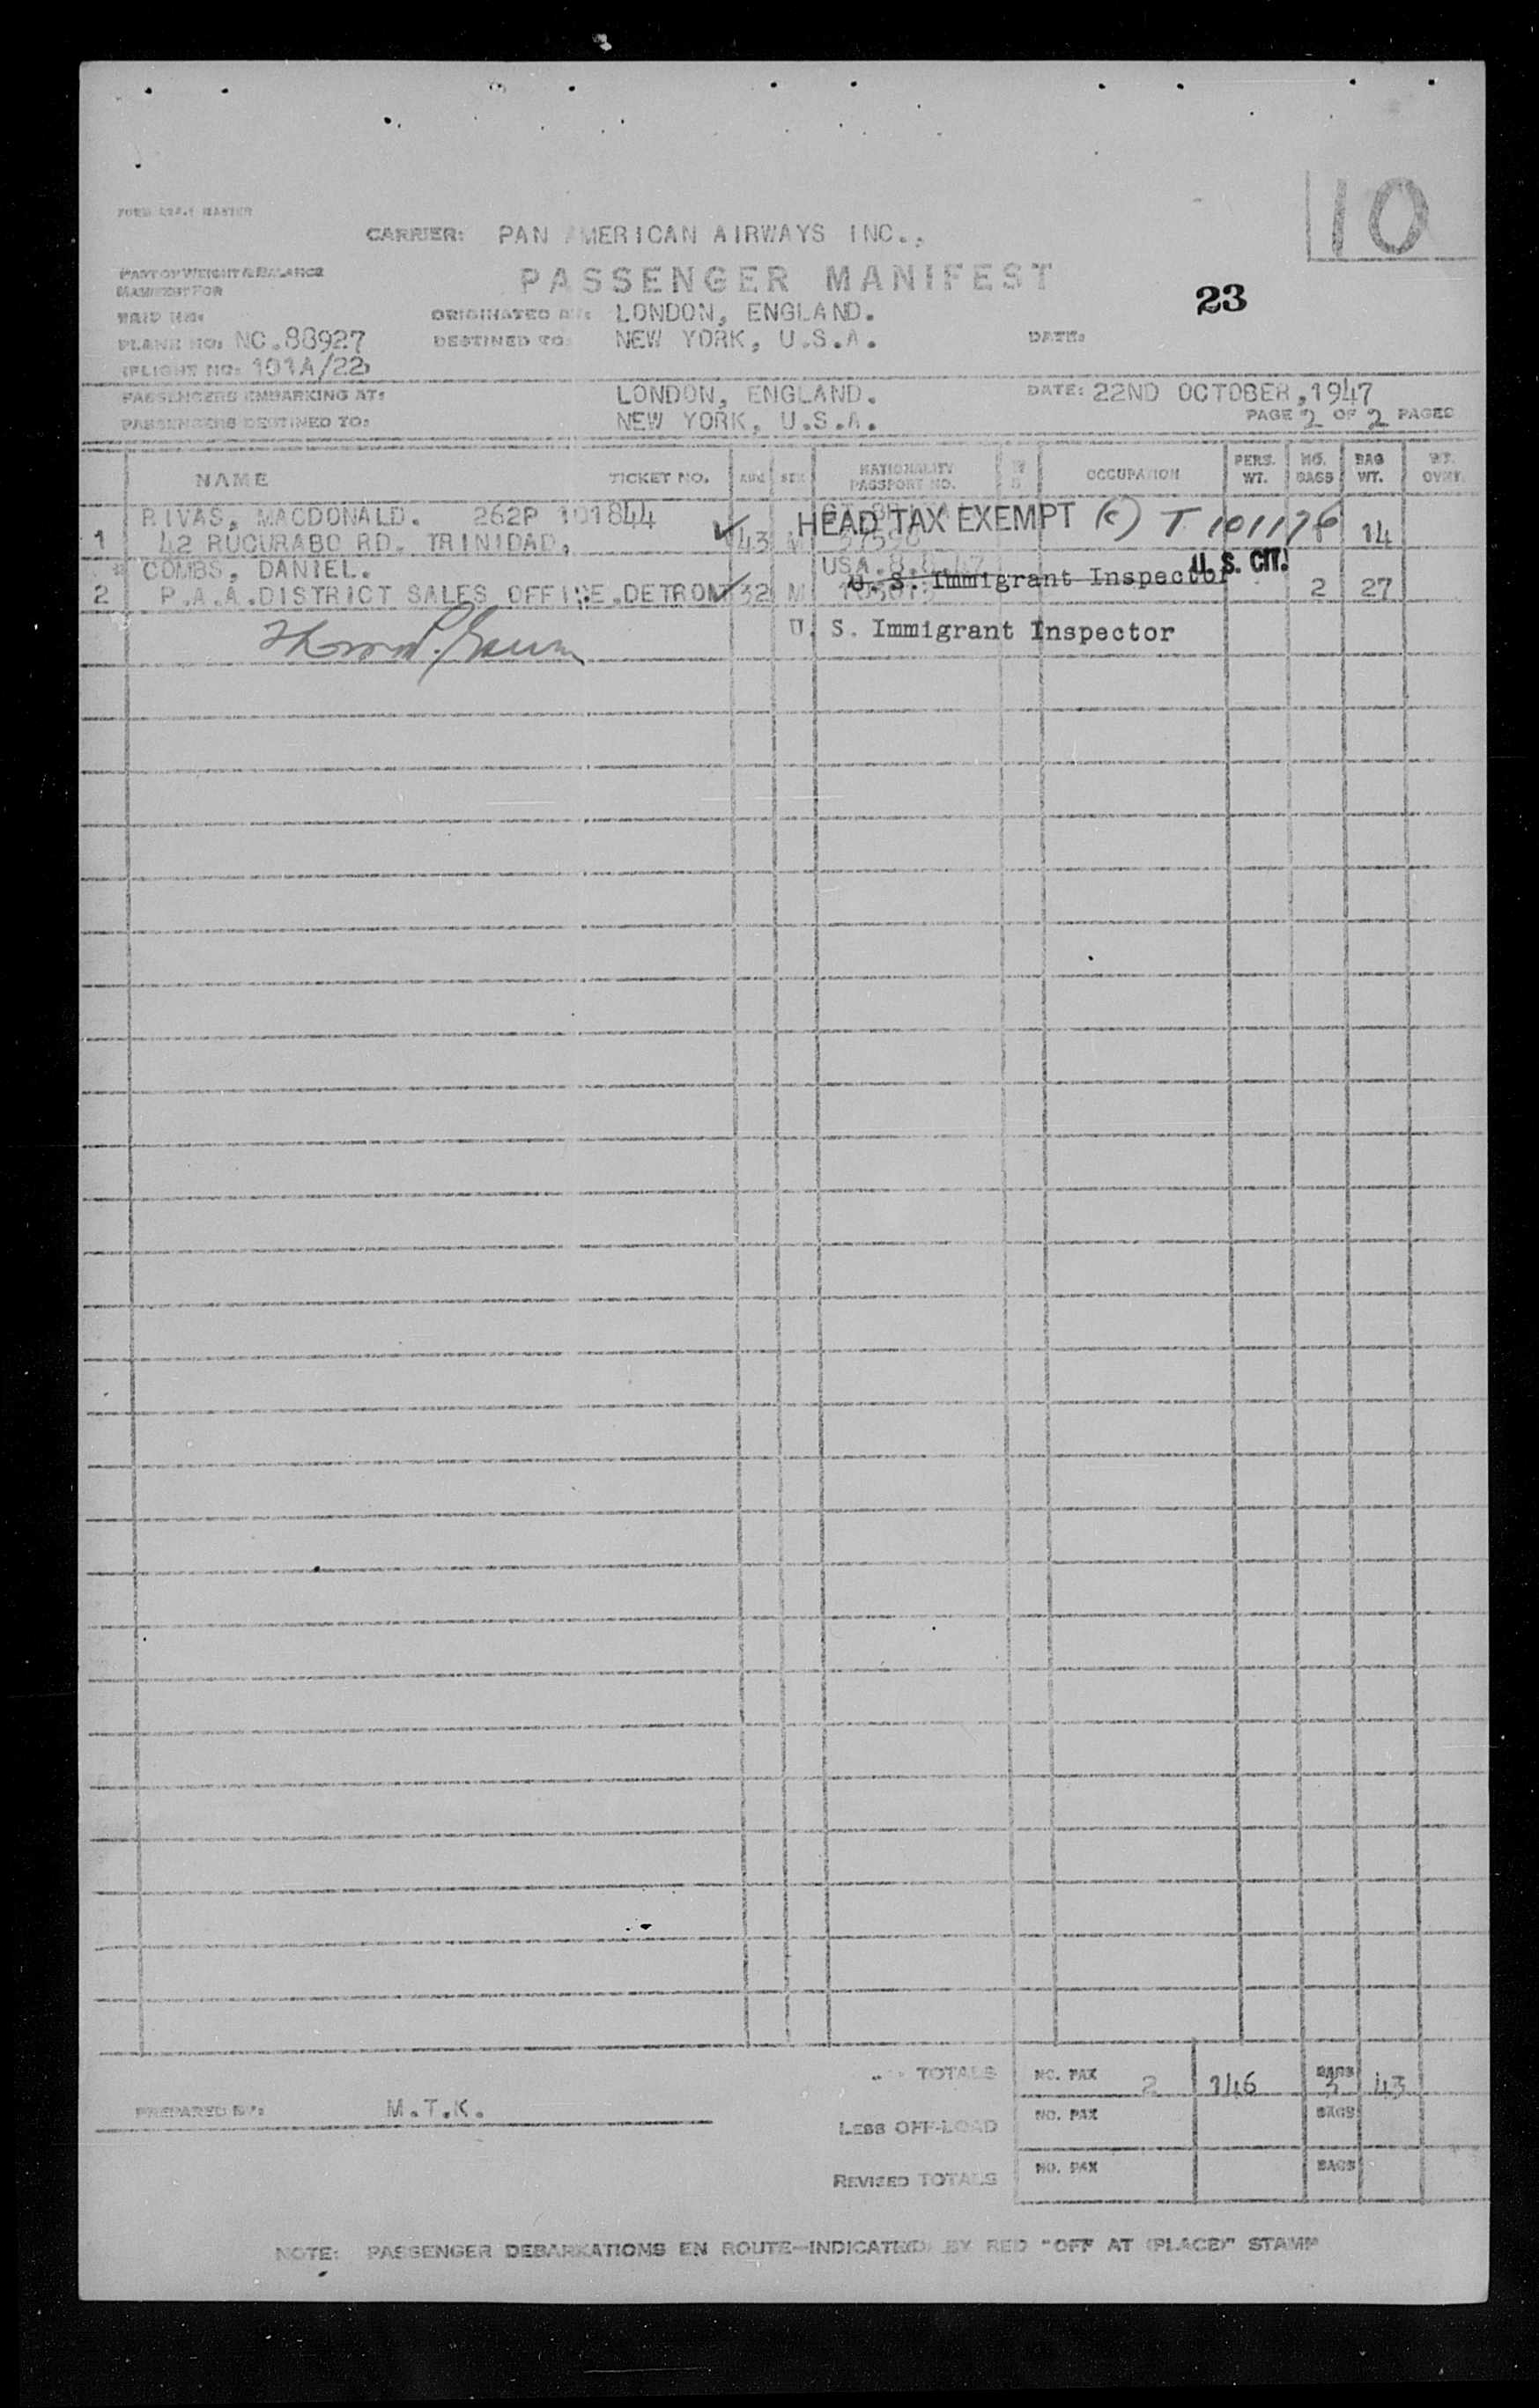 10
CARRIER: PAN AMERICAN AIRWAYS INC.,
PART OF WEIGHT & BALANCE
MANIFEST FOR
PASSENGER MANIFEST
23
ORIGINATED AT: LONDON, ENGLAND.
PLANE NO: NC.88927
DESTINED TO: NEW YORK, U.S.A.
DATE:
FLIGHT NO: 101A/22
PASSENGERS EMBARKING AT: LONDON, ENGLAND.
DATE: 22ND OCTOBER, 1947
PASSENGERS DESTINED TO: NEW YORK, U.S.A.
PAGE 2 OF 2 PAGES
NAME TICKET NO. AGE SEX NATIONALITY PASSPORT NO. OCCUPATION PERS. WT. NO. BAGS BAG WT. WT. OVWT.
RIVAS, MACDONALD. 262P 101844
HEAD TAX EXEMPT (c) T 101176
1 42 RUCURABO RD. TRINIDAD, 43 M 14
COMBS, DANIEL. USA.
U. S. CIT.
U. S. Immigrant Inspector
2 P.A.A.DISTRICT SALES OFFICE.DETROIT 32 M 2 27
U. S. Immigrant Inspector
TOTALS NO. PAX 2 146 BAGS 3 43
PREPARED BY: M.T.K.
LESS OFF-LOAD NO. PAX BAGS
REVISED TOTALS NO. PAX BAGS
NOTE: PASSENGER DEBARKATIONS EN ROUTE—INDICATED BY RED "OFF AT (PLACE)" STAMP